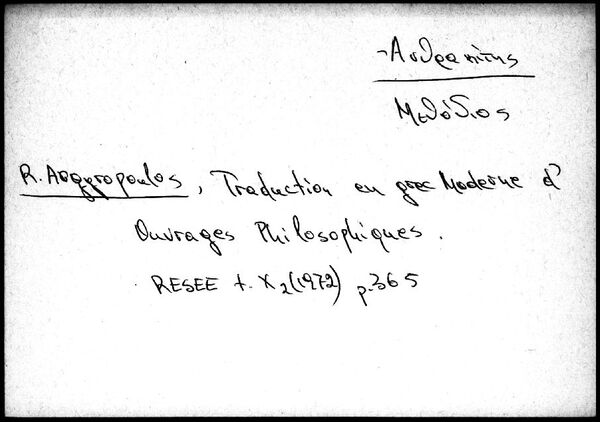 -Ανθρακίτης
Μεθόδιος
R. Argyropoulos, Traduction en grec Moderne d'
Ouvrages Philosophiques.
RESEE t. X2 (1972) p. 365